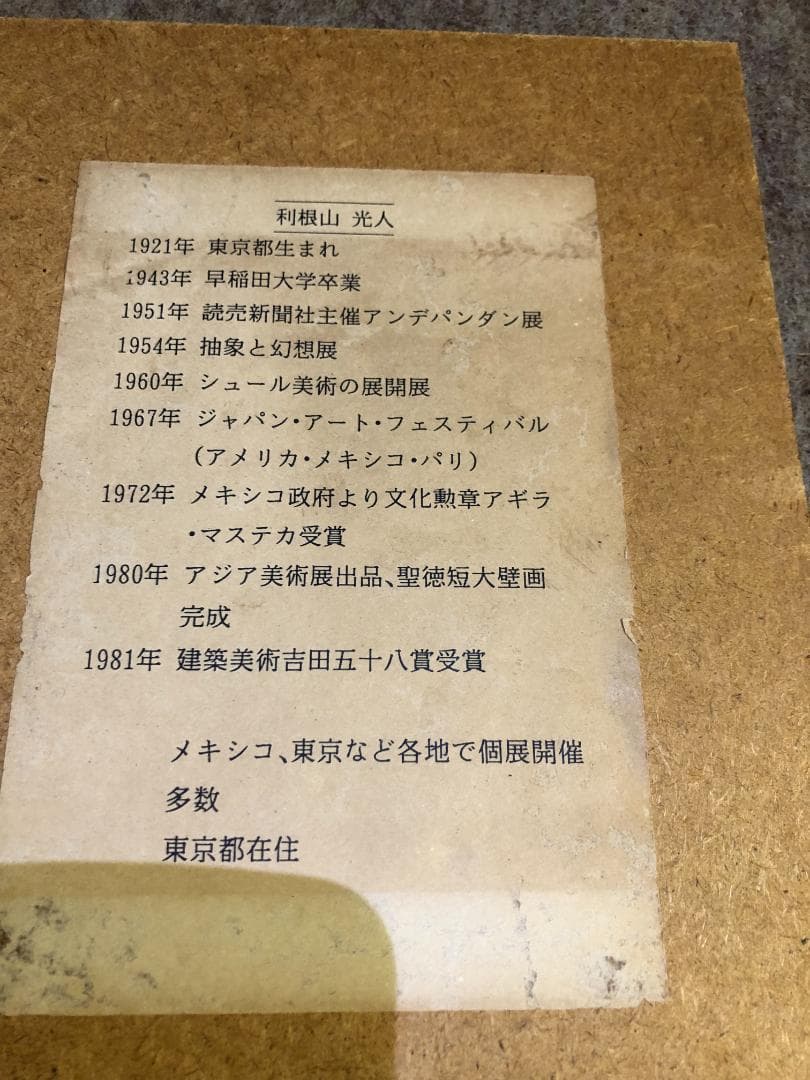 利根山 光人
1921年 東京都生まれ
1943年 早稲田大学卒業
1951年 読売新聞社主催アンデパンダン展
1954年 抽象と幻想展
1960年 シュール美術の展開展
1967年 ジャパン・アート・フェスティバル
(アメリカ・メキシコ・パリ)
1972年 メキシコ政府より文化勲章アギラ
・マステカ受賞
1980年 アジア美術展出品、聖徳短大壁画
完成
1981年 建築美術吉田五十八賞受賞
メキシコ、東京など各地で個展開催
多数
東京都在住